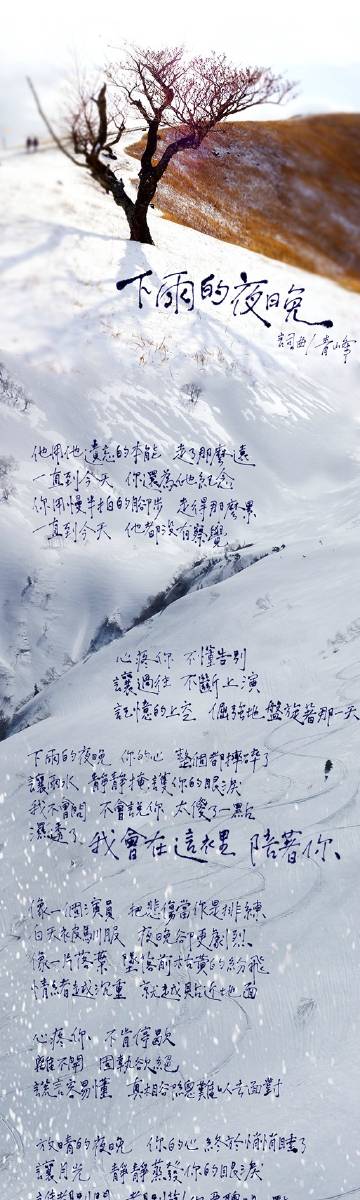 下雨的夜晚
詞曲/青峰
他用他遺忘的本能 走了那麼遠
一直到今天 你還為他紀念
你用慢半拍的腳步 走得那麼累
一直到今天 他都沒有察覺
心疼你 不懂告別
讓過往 不斷上演
記憶的上空 倔強地盤旋著那一天
下雨的夜晚 你的心 整個都摔碎了
讓雨水 靜靜掩護你的眼淚
我不會問 不會說你 太傻了一點
濕透了 我會在這裡 陪著你
像一個演員 把悲傷當作是排練
白天被馴服 夜晚卻更劇烈
像一片落葉 墜落前枯黃的紛飛
情緒越沉重 就越貼近地面
心疼你 不肯停歇
離不開 固執欲絕
謊言容易懂 真相谷總難以去面對
放晴的夜晚 你的心 終於悄悄睡了
讓月光 靜靜蒸發你的眼淚